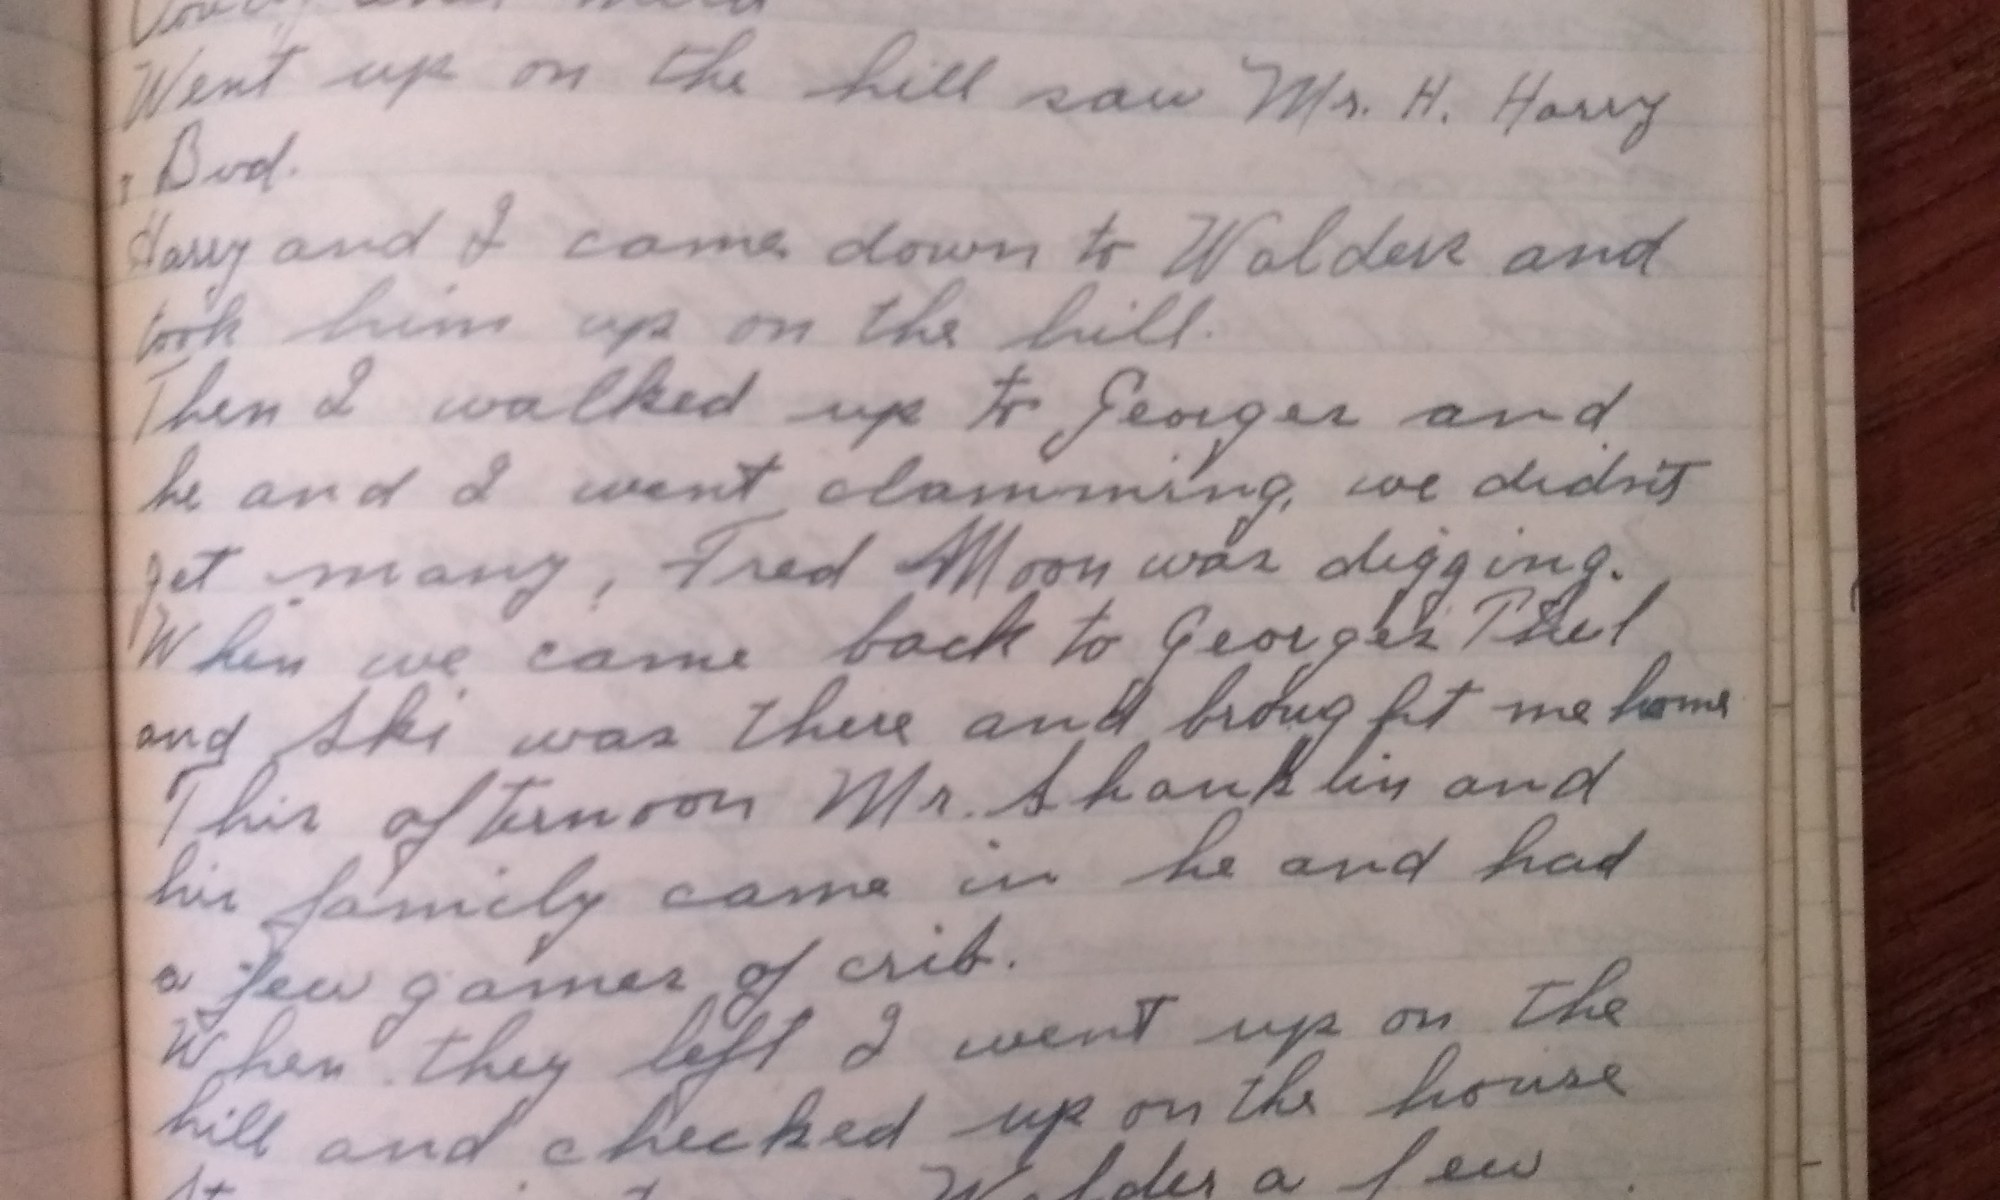 and
Went up on the hill saw Mr. H. Harry
Bud.
Harry and I came down to Walders and
took him up on the hill.
Then I walked up to Georges and
he and I went clamming, we didn't
get many, Fred Moon was digging.
When we came back to Georges Phil
and Ski was there and brought me home
This afternoon Mr. Shanklin and
his family came in he and had
a few games of crib.
When they left I went up on the
hill and checked up on the house
a few